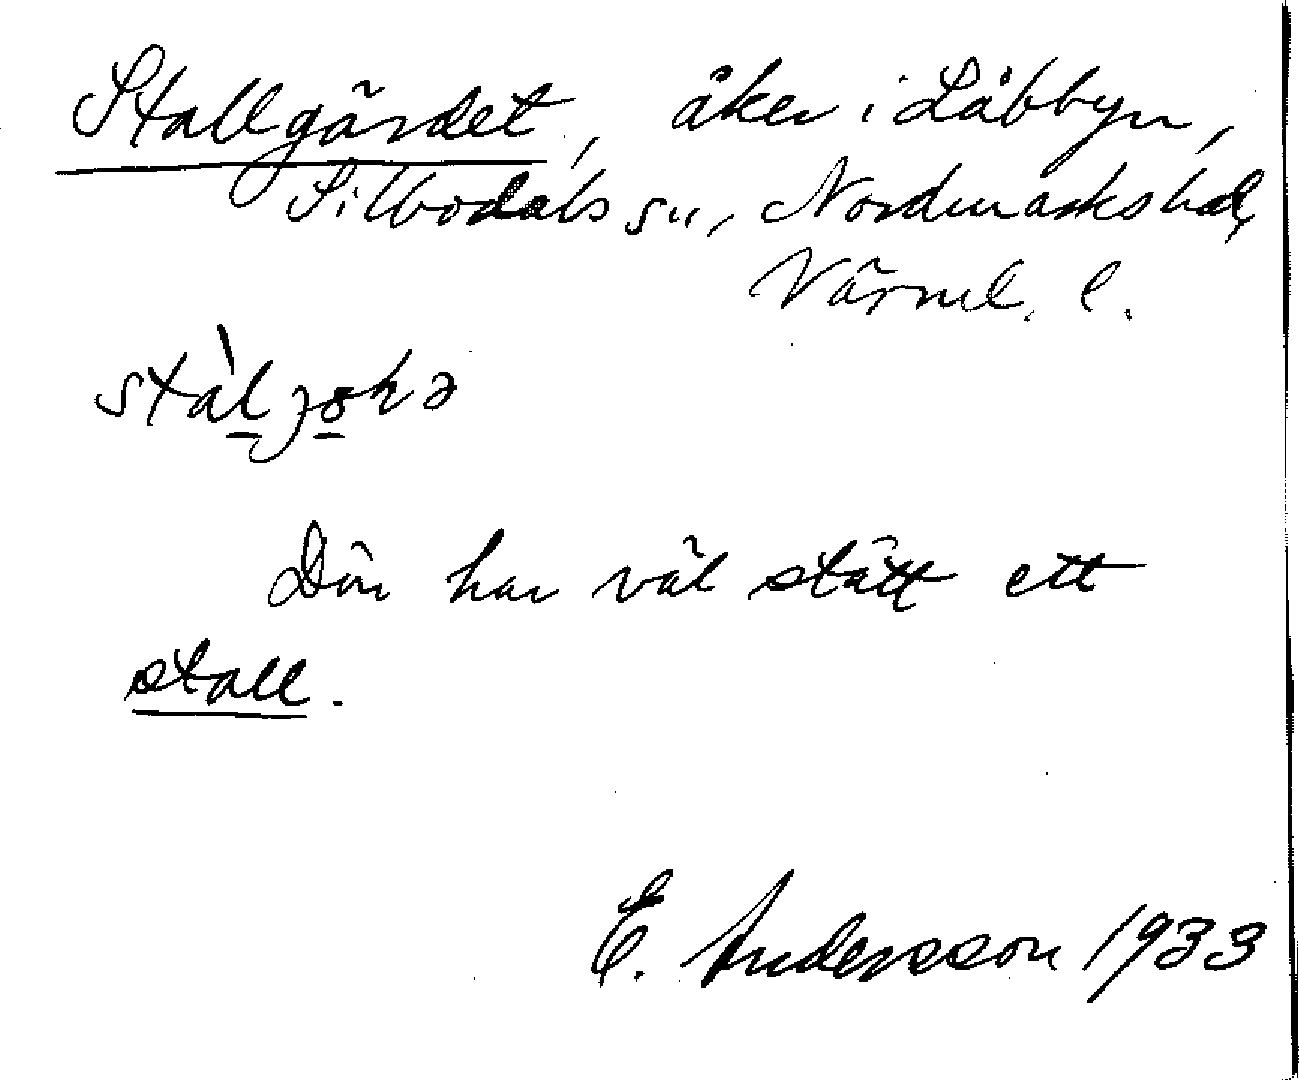 Stallgärdet, åker i Låbbyn,
Silbodals sn, Nordmarks hd,
Värml. l.
Där har väl stått ett
stall.
E. Andersson 1933